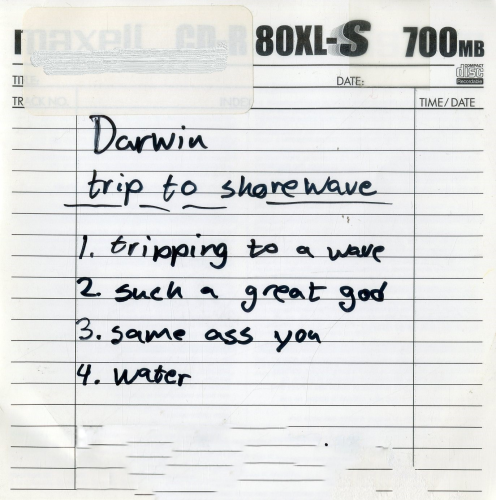 maxell CD-R 80XL-S 700MB
TITLE: DATE:
COMPACT disc Recordable
TRACK NO. INDEX TIME/DATE
Darwin
trip to shorewave
1. tripping to a wave
2. such a great god
3. same ass you
4. water